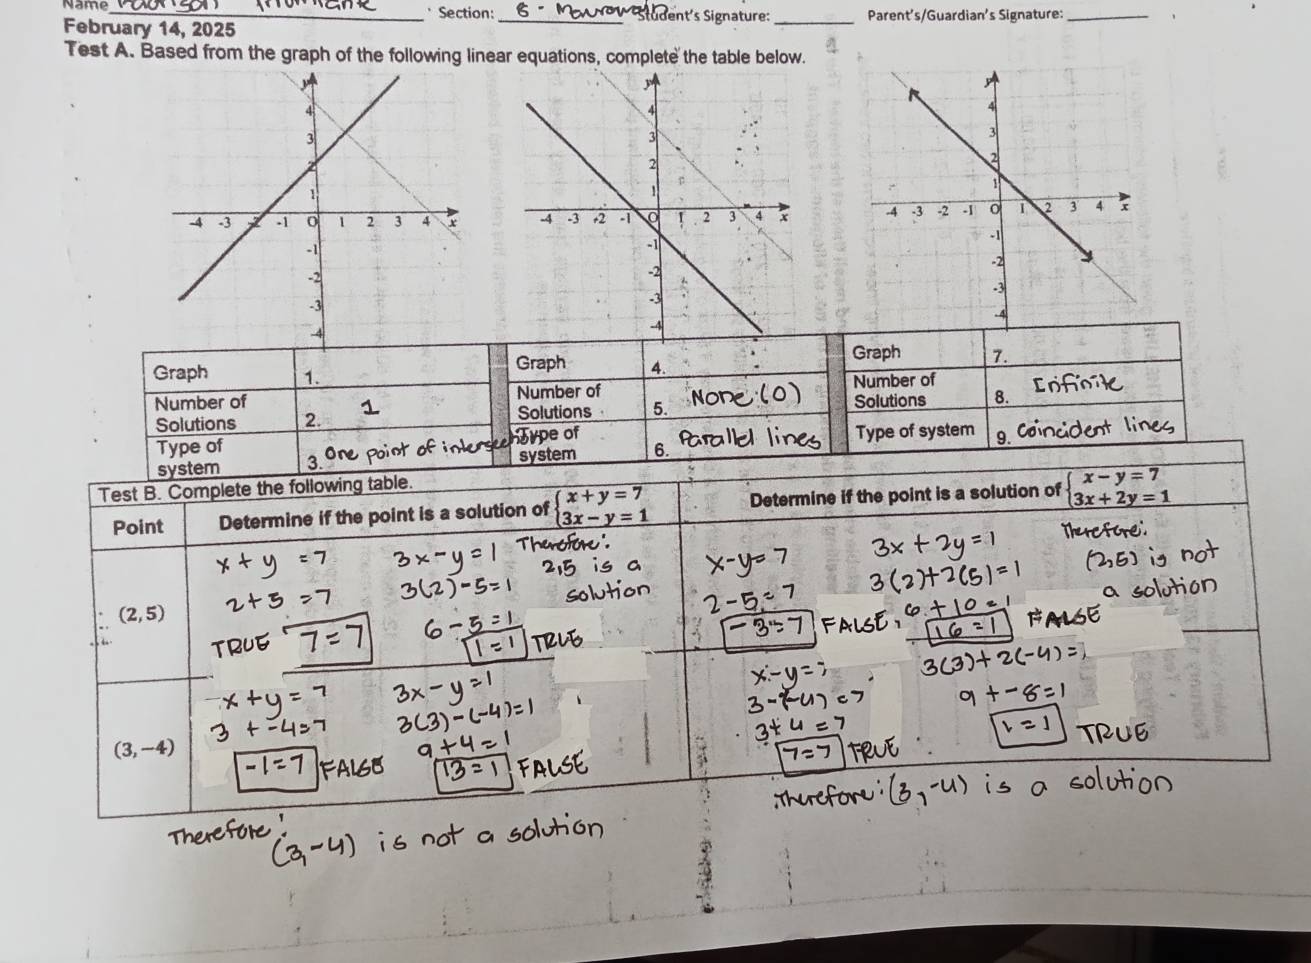 Name
Section: 8 -
Student's Signature:
Parent's/Guardian's Signature:
February 14, 2025
Test A. Based from the graph of the following linear equations, complete the table below.
y
4
3
2
1
-4 -3 -2 -1 O 1 2 3 4 x
-1
-2
-3
-4
y
4
3
2
1
-4 -3 -2 -1 O 1 2 3 4 x
-1
-2
-3
-4
y
4
3
2
1
-4 -3 -2 -1 O 1 2 3 4 x
-1
-2
-3
-4
Graph 1.
Number of Solutions 2. 1
Type of system 3. One point of intersection
Graph 4.
Number of Solutions 5. None (0)
Type of system 6. Parallel lines
Graph 7.
Number of Solutions 8. Infinite
Type of system 9. Coincident lines
Test B. Complete the following table.
Point
Determine if the point is a solution of { x + y = 7
3x − y = 1
Determine if the point is a solution of { x − y = 7
3x + 2y = 1
(2, 5)
x + y = 7
2 + 5 = 7
TRUE 7 = 7
3x - y = 1
3(2) - 5 = 1
6 - 5 = 1
1 = 1 TRUE
Therefore:
2,5 is a
solution
x - y = 7
2 - 5 = 7
-3 = 7 FALSE,
3x + 2y = 1
3(2) + 2(5) = 1
6 + 10 = 1
16 = 1 FALSE
Therefore:
(2,5) is not
a solution
(3, −4)
x + y = 7
3 + -4 = 7
-1 = 7 FALSE
3x - y = 1
3(3) - (-4) = 1
9 + 4 = 1
13 = 1 FALSE
x - y = 7
3 - (-4) = 7
3 + 4 = 7
7 = 7 TRUE
3(3) + 2(-4) = 1
9 + -8 = 1
1 = 1 TRUE
Therefore: (3, -4) is a solution
Therefore:
(3, -4) is not a solution